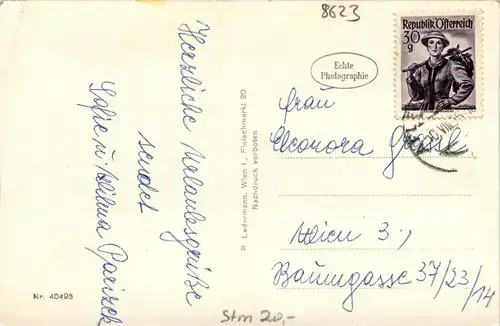 8623
Republik Österreich
30
g
Echte
Photographie
Herzliche Urlaubsgrüße
sendet
Sofie u. Wilma Parizek
P. Ledermann, Wien I., Fleischmarkt 20
Nachdruck verboten
Frau
Eleonora
Wien 3.,
Baumgasse 37/23/14
Nr. 40495
Stm 20,-